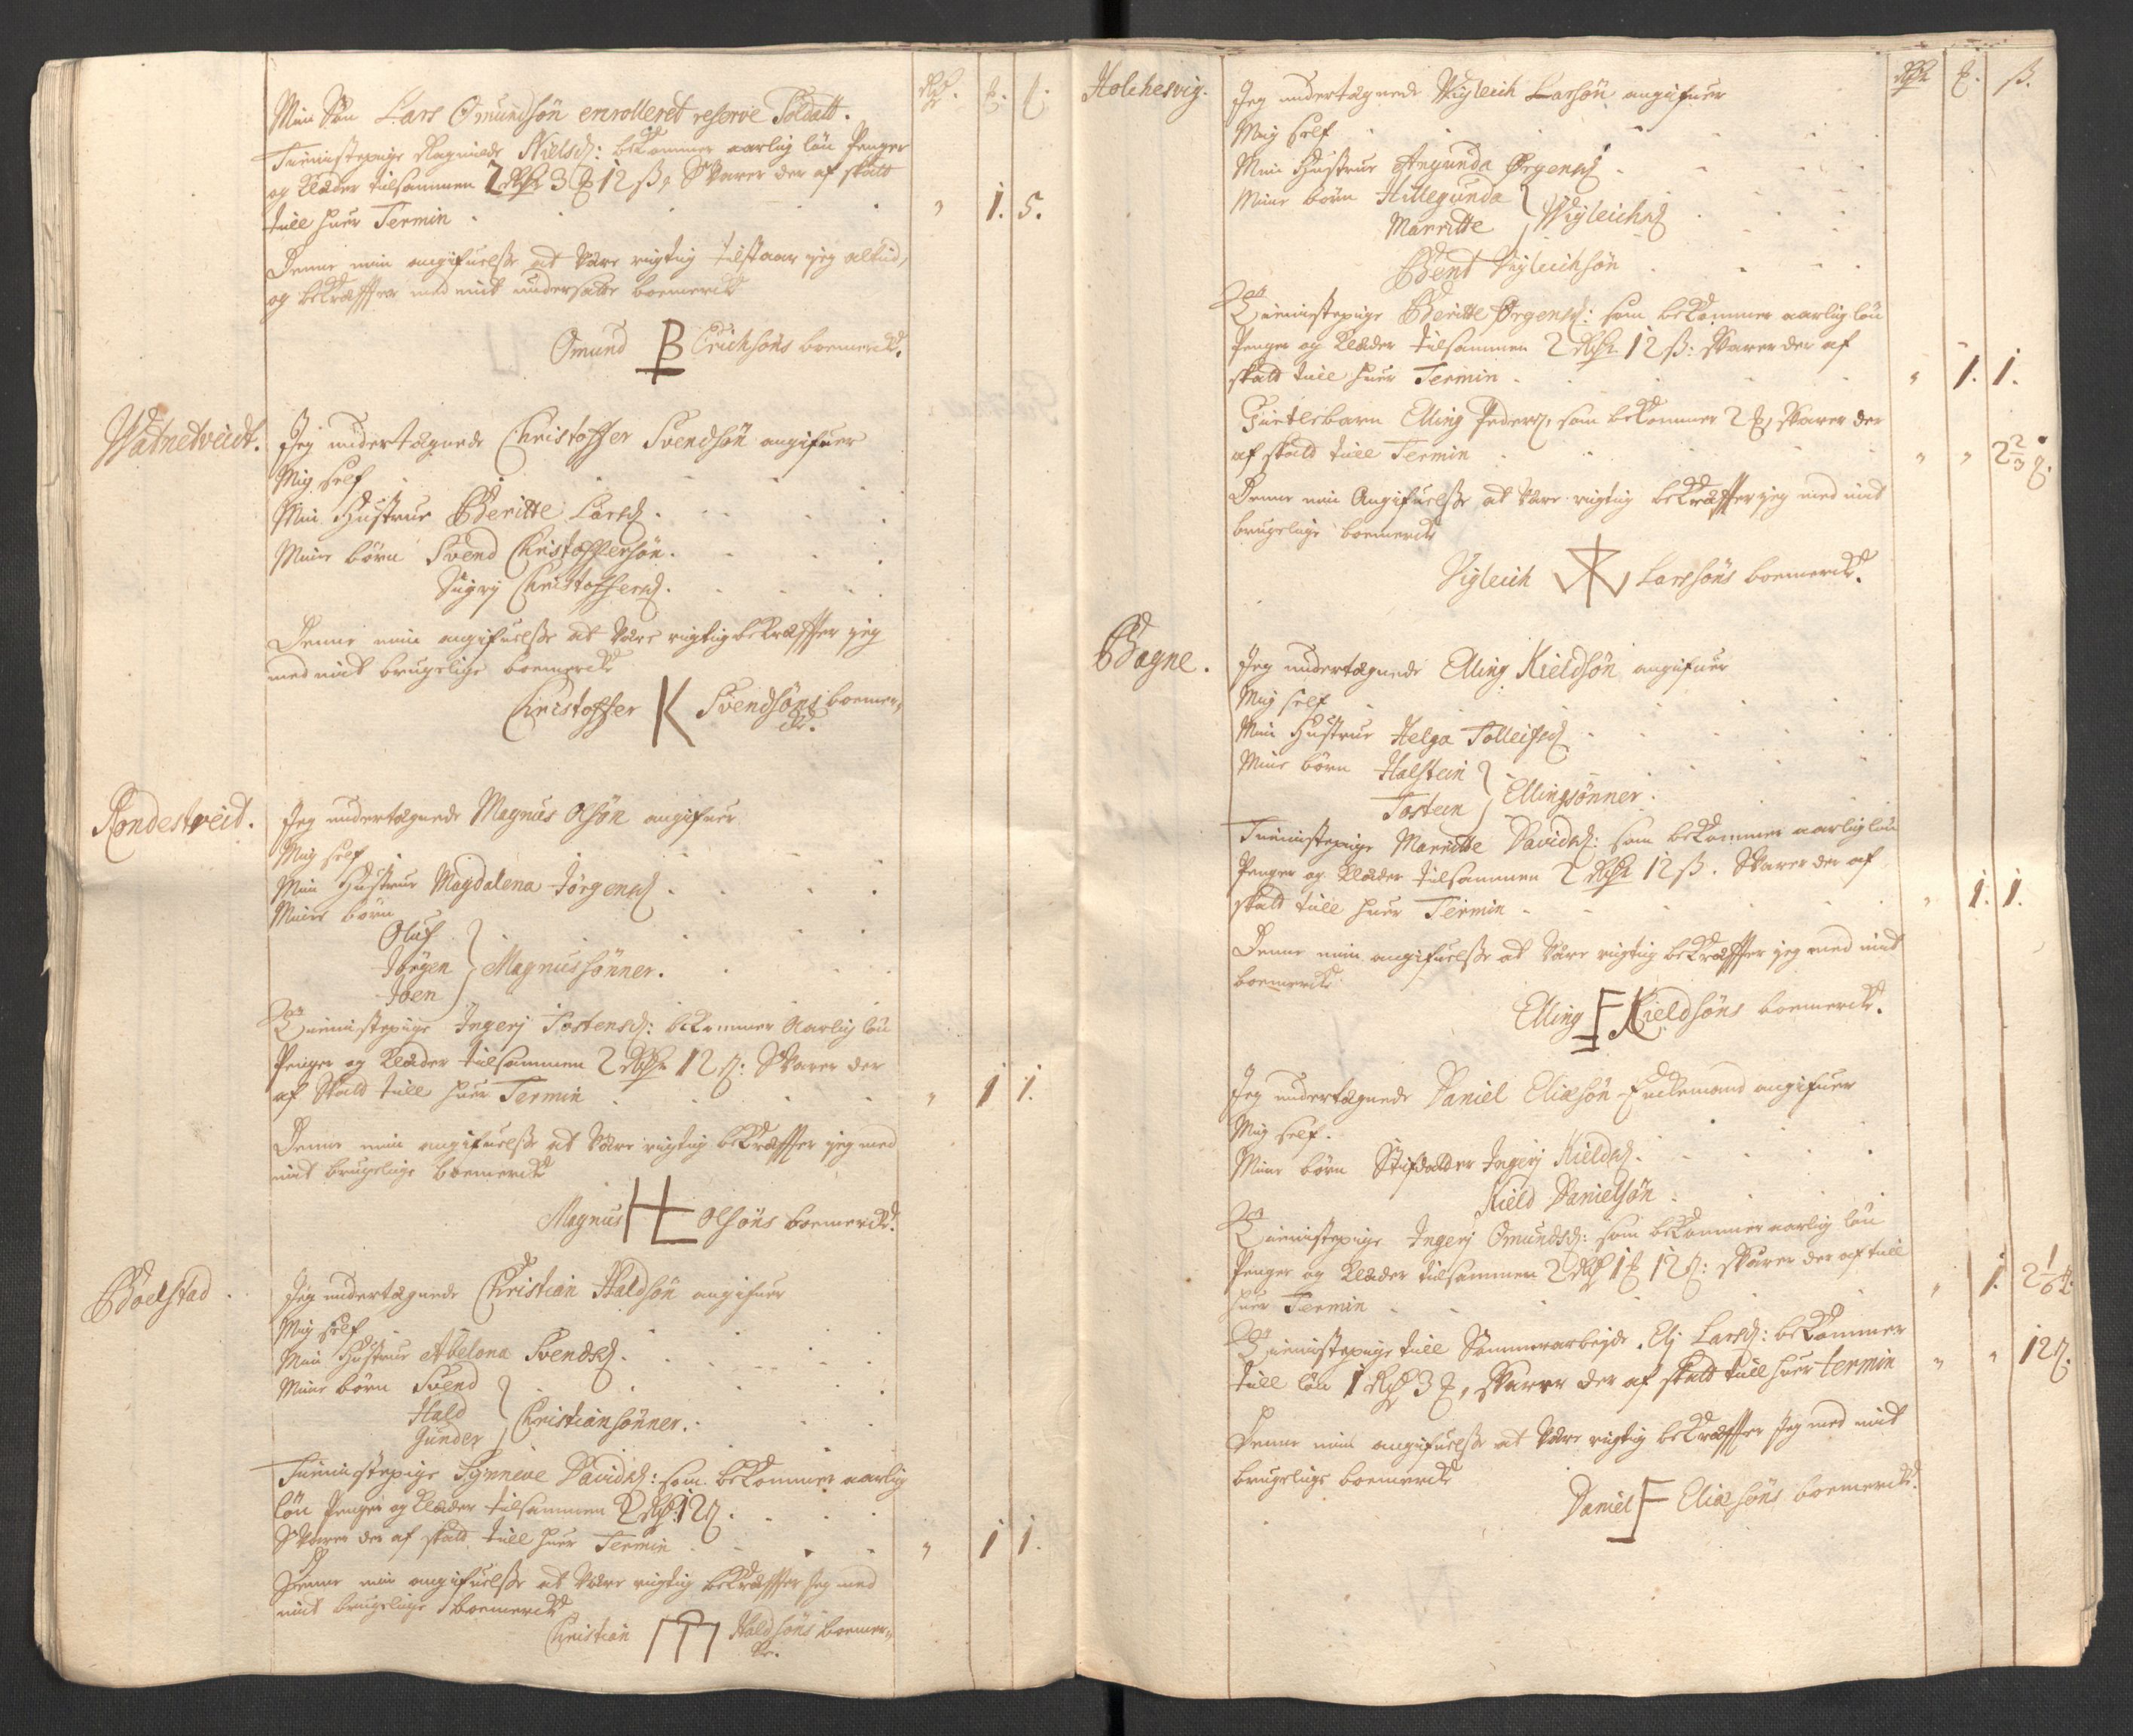 Rdr. ₰. ß.
Min Søn Lars Omundsøn enrolleret reserve Soldatt.
Tiennistepige Ragnilde Nielsd: bekommer aarlig løn Penger
og Klæder tilsammen 2 Rdr 3 ₰ 12 ß, Svarer der af skatt
till huer Termin . " 1. 5.
Denne min angifuelsse at Være rigtig tilstaar jeg altid,
og bekræffter med mit undersatte boemerck
Omund B Erichsøns boemerck.
Watnetveidt. Jeg undertegnede Christoffer Svendsøn angifuer
Mig self
Min Hustrue Beritte Larsd.
Mine børn Svend Christoffersøn.
Sigrj Christoffersd.
Denne min angifuelsse at Være rigtig bekræffter jeg
med mit brugelige boemercke
Christoffer K Svendsøns boemer-
cke.
Rondestveid. Jeg undertegnede Magnus Olsøn angifuer
Mig self
Min Hustrue Magdalena Jørgensd.
Mine børn
Oluf
Jørgen } Magnussønner.
Joen
Tiennistepige Ingerj Tostensd: bekommer Aarlig løn
Penger og Klæder tilsammen 2 Rdr 12 ß: Svarer der
af Skatt till huer Termin " 1 1.
Denne min angifuelsse at Være rigtig bekræffter jeg med
mit brugelige boemercke
Magnus HL Olsøns boemercke.
Boelstad. Jeg undertegnede Christian Haldsøn angifuer
Mig self
Min Hustrue Abelona Svendsd.
Mine børn Svend
Hald } Christiansønner.
Gunder
Tiennistepige Synneve Davidsd: som bekommer aarlig
løn Penger og Klæder tilsammen 2 Rdr: 12 ß.
Svarer der af skatt till huer Termin " 1 1.
Denne min angifuelsse at Være rigtig bekræffter Jeg med
mit brugelige boemercke
Christian Haldsøns boemer-
ke.
Rdr ₰. ß.
Holchesvig. Jeg undertegnede Vigleich Larsøn angifuer
Mig self
Min Hustrue Angunda Ørgensd
Mine børn Hillegunda
Marritte } Wigleichsd
Bent Vigleichsøn
Tiennistepige Beritte Ørgensd: som bekommer aarlig løn
Penger og Klæder tilsammen 2 Rdr 12 ß: Svarer der af
skatt till huer Termin " 1. 1.
Gietlebarn Elling Peders, som bekommer 2 ₰, Svarer der
af skatt till Termin " " 2 2/3 ß.
Denne min Angifuelsse at Være rigtig bekræffter jeg med mit
brugelige boemerck
Vigleich Larssøns boemercke.
Bagne. Jeg undertegnede Elling Kieldsøn angifuer
Mig self
Min Hustrue Helga Tolleifsd
Mine børn Halstein
Tostein } Ellingsønner.
Tiennistepige Marritte Davidsd: som bekommer aarlig løn
Penger og Klæder tilsammen 2 Rdr 12 ß. Svarer der af
skatt till huer Termin " 1. 1.
Denne min angifuelsse at Være rigtig bekræffter jeg med mit
boemercke
Elling Kieldsøns boemercke.
Jeg undertegnede Daniel Eliæsøn Enckemand angifuer
Mig self.
Mine børn Stifdatter Ingerj Kieldsd.
Kield Danielsøn.
Tiennistepige Ingerj Omundsd: som bekommer aarlig løn
Penger og Klæder tilsammen 2 Rdr 1 ₰ 12 ß: Svarer der af till
huer Termin " 1. 2 1/6
Tiennistepige till Sommerarbejde. Elj Larsd: bekommer
till løn 1 Rdr 3 ₰, Svarer der af skatt till huer termin " " 12 ß.
Denne min angifuelsse at Være rigtig bekræffter Jeg med mit
brugelige boemercke
Daniel F Eliæsøns boemercke.